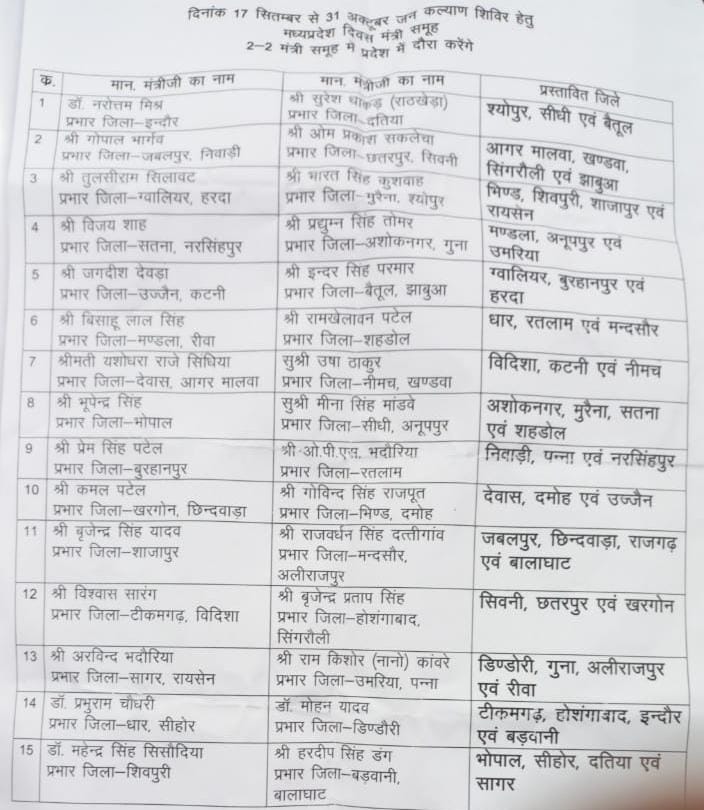 दिनांक 17 सितम्बर से 31 अक्टूबर जन कल्याण शिविर हेतु
मध्यप्रदेश दिवस मंत्री समूह
2-2 मंत्री समूह में प्रदेश में दौरा करेंगे
क. मान. मंत्रीजी का नाम मान. मंत्रीजी का नाम प्रस्तावित जिले
1 डॉ. नरोत्तम मिश्र श्री सुरेश धाकड़ (राठखेड़ा) श्योपुर, सीधी एवं बैतूल
प्रभार जिला-इन्दौर प्रभार जिला-दतिया
2 श्री गोपाल भार्गव श्री ओम प्रकाश सकलेचा आगर मालवा, खण्डवा,
प्रभार जिला-जबलपुर, निवाड़ी प्रभार जिला-छतरपुर, सिवनी सिंगरौली एवं झाबुआ
3 श्री तुलसीराम सिलावट श्री भारत सिंह कुशवाह भिण्ड, शिवपुरी, शाजापुर एवं
प्रभार जिला-ग्वालियर, हरदा प्रभार जिला-मुरैना, श्योपुर रायसेन
4 श्री विजय शाह श्री प्रद्युम्न सिंह तोमर मण्डला, अनूपपुर एवं
प्रभार जिला-सतना, नरसिंहपुर प्रभार जिला-अशोकनगर, गुना उमरिया
5 श्री जगदीश देवड़ा श्री इन्दर सिंह परमार ग्वालियर, बुरहानपुर एवं
प्रभार जिला-उज्जैन, कटनी प्रभार जिला-बैतूल, झाबुआ हरदा
6 श्री बिसाहू लाल सिंह श्री रामखेलावन पटेल धार, रतलाम एवं मन्दसौर
प्रभार जिला-मण्डला, रीवा प्रभार जिला-शहडोल
7 श्रीमती यशोधरा राजे सिंधिया सुश्री उषा ठाकुर विदिशा, कटनी एवं नीमच
प्रभार जिला-देवास, आगर मालवा प्रभार जिला-नीमच, खण्डवा
8 श्री भूपेन्द्र सिंह सुश्री मीना सिंह मांडवे अशोकनगर, मुरैना, सतना
प्रभार जिला-भोपाल प्रभार जिला-सीधी, अनूपपुर एवं शहडोल
9 श्री प्रेम सिंह पटेल श्री ओ.पी.एस. भदौरिया निवाड़ी, पन्ना एवं नरसिंहपुर
प्रभार जिला-बुरहानपुर प्रभार जिला-रतलाम
10 श्री कमल पटेल श्री गोविन्द सिंह राजपूत देवास, दमोह एवं उज्जैन
प्रभार जिला-खरगोन, छिन्दवाड़ा प्रभार जिला-भिण्ड, दमोह
11 श्री बृजेन्द्र सिंह यादव श्री राजवर्धन सिंह दत्तीगांव जबलपुर, छिन्दवाड़ा, राजगढ़
प्रभार जिला-शाजापुर प्रभार जिला-मन्दसौर, एवं बालाघाट
अलीराजपुर
12 श्री विश्वास सारंग श्री बृजेन्द्र प्रताप सिंह सिवनी, छतरपुर एवं खरगोन
प्रभार जिला-टीकमगढ़, विदिशा प्रभार जिला-होशंगाबाद,
सिंगरौली
13 श्री अरविन्द भदौरिया श्री राम किशोर (नानो) कांवरे डिण्डोरी, गुना, अलीराजपुर
प्रभार जिला-सागर, रायसेन प्रभार जिला-उमरिया, पन्ना एवं रीवा
14 डॉ. प्रभुराम चौधरी डॉ. मोहन यादव टीकमगढ़, होशंगाबाद, इन्दौर
प्रभार जिला-धार, सीहोर प्रभार जिला-डिण्डौरी एवं बड़वानी
15 डॉ. महेन्द्र सिंह सिसौदिया श्री हरदीप सिंह डंग भोपाल, सीहोर, दतिया एवं
प्रभार जिला-शिवपुरी प्रभार जिला-बड़वानी, सागर
बालाघाट